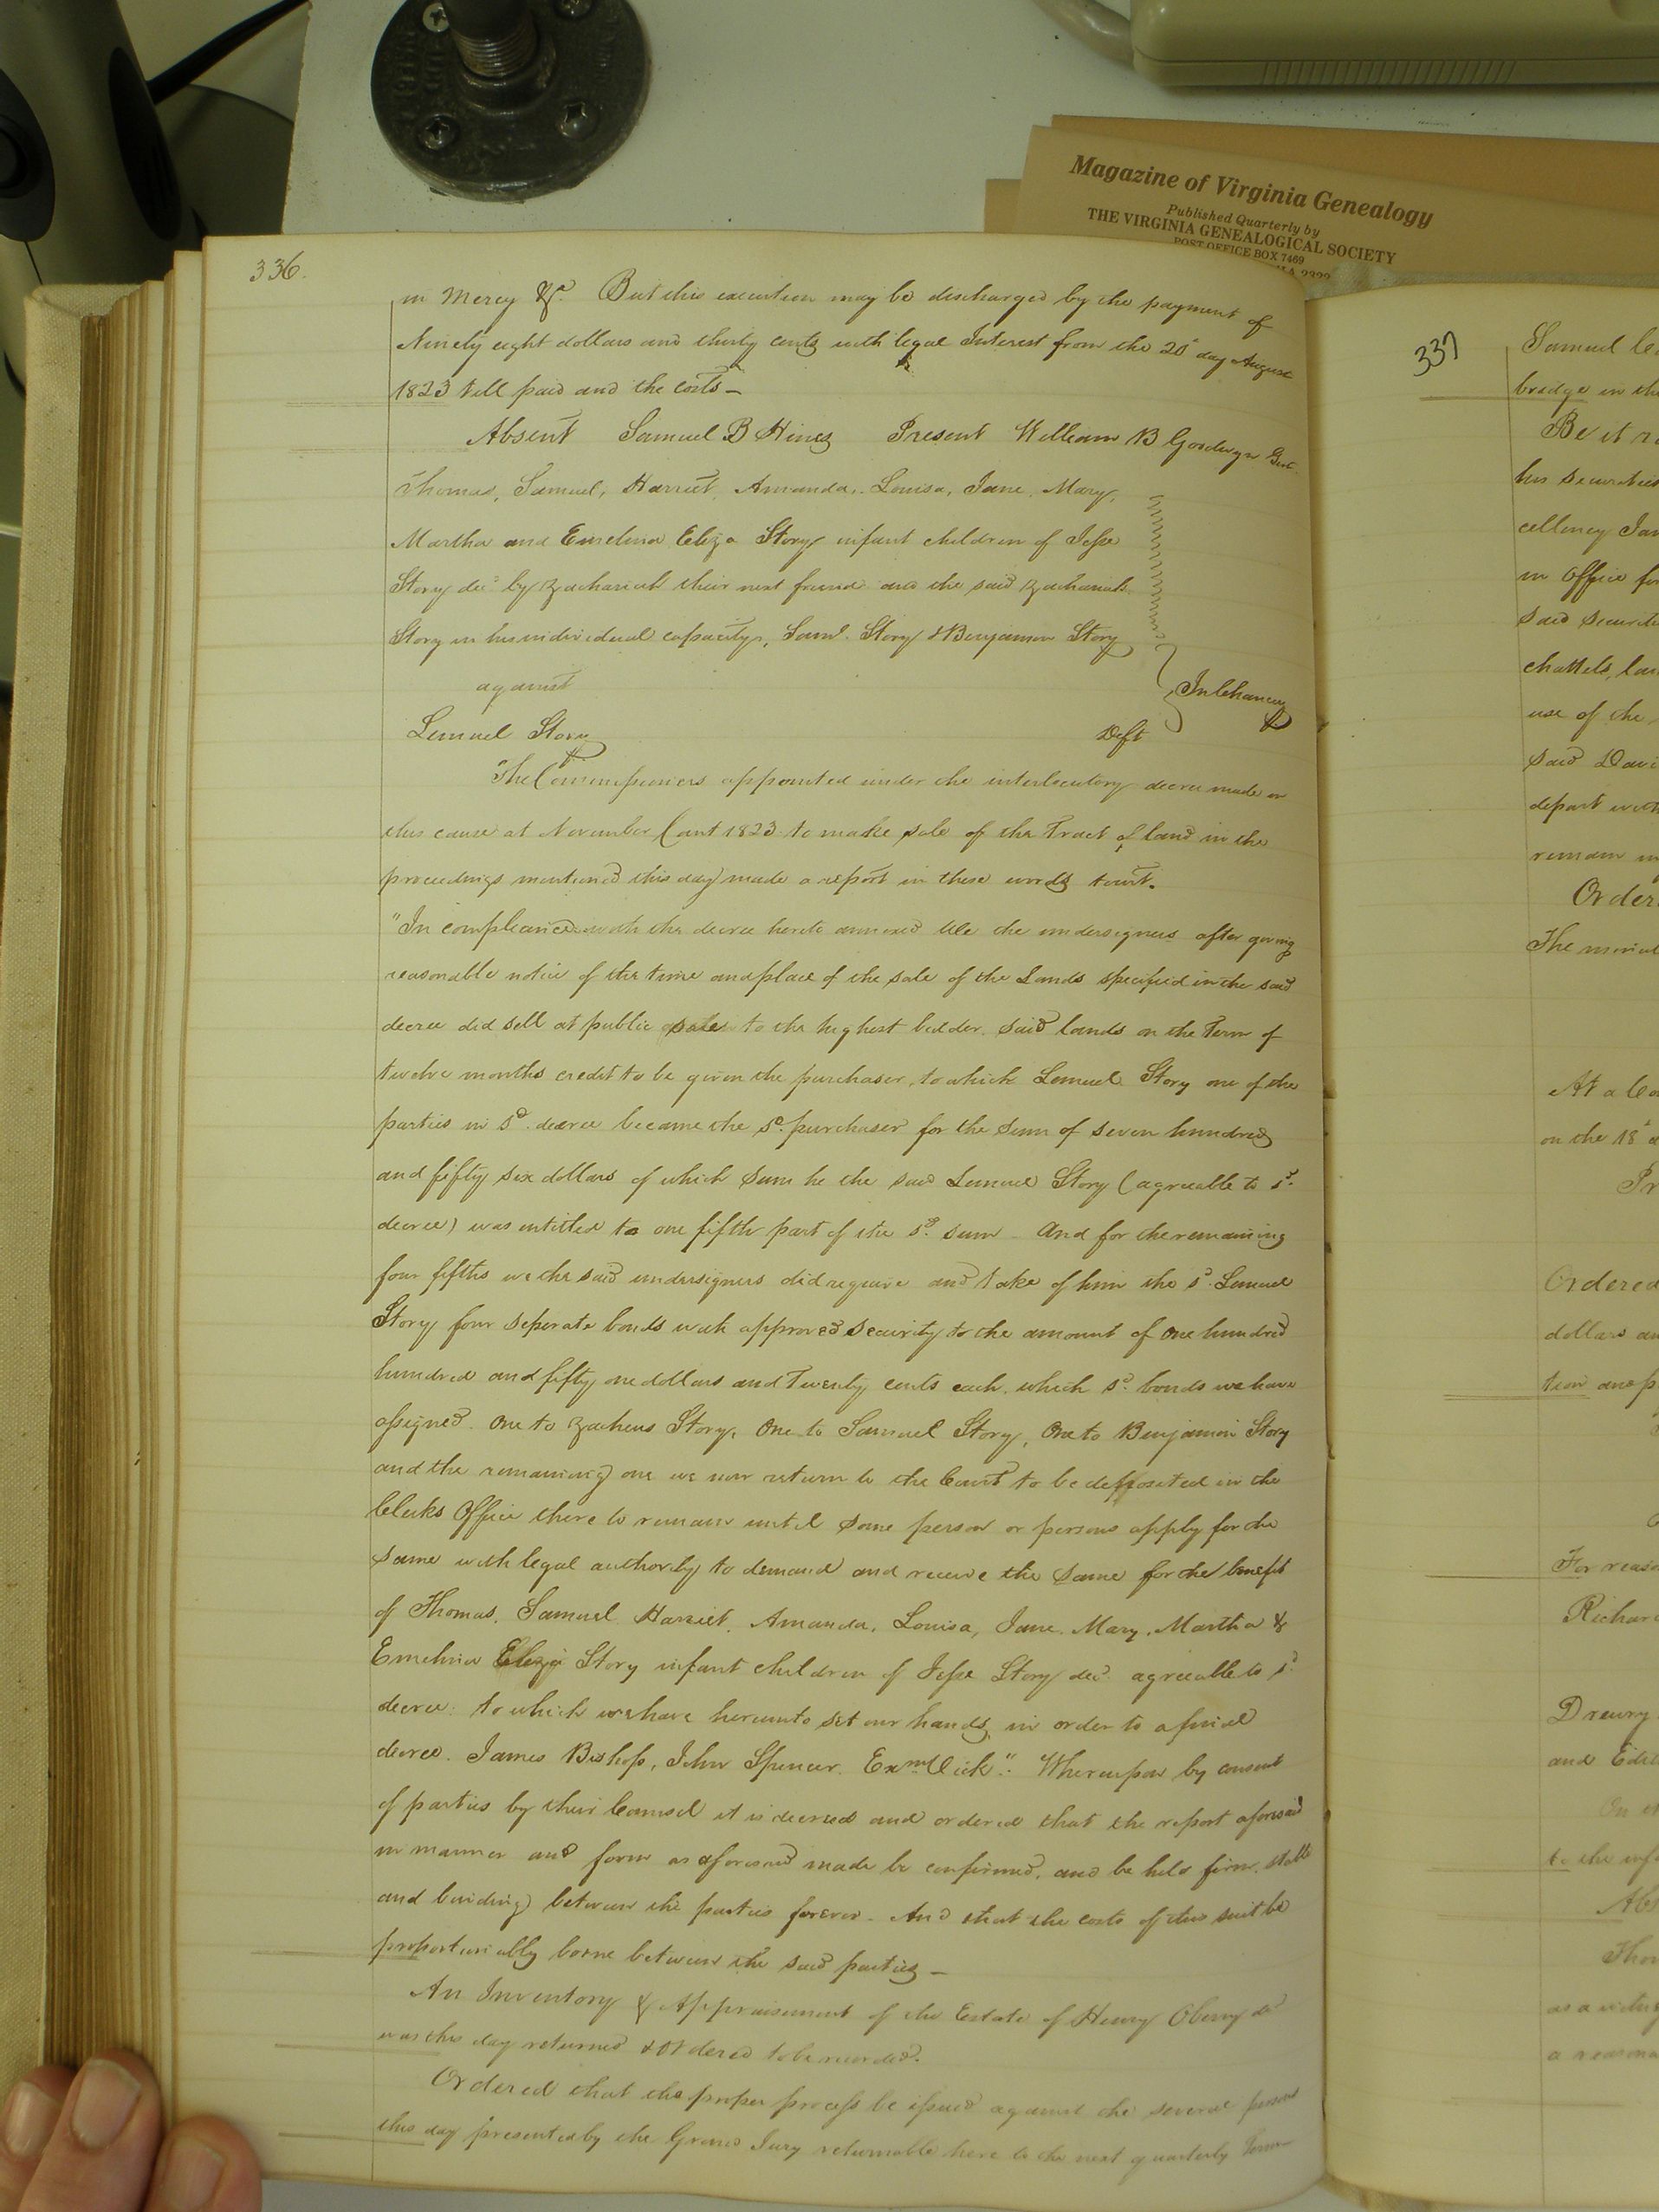 Magazine of Virginia Genealogy
Published Quarterly by
THE VIRGINIA GENEALOGICAL SOCIETY
POST OFFICE BOX 7469
336.
in Mercy &c. But this execution may be discharged by the payment of
Ninety eight dollars and thirty cents with legal Interest from the 20 day August
1823 till paid and the costs –
Absent Samuel B Hines Present William B Goodwyn Gent.
Thomas, Samuel, Harriet, Amanda, Louisa, Jane, Mary,
Martha and Emelina Eliza Story infant children of Jesse
Story decd by Zachariah their next friend and the said Zachariah
Story in his individual capacity, Saml. Story & Benjamin Story
against
In Chancery
Lemuel Story Deft
The Commissioners appointed under the interlocutory decree made in
this cause at November Court 1823 to make sale of the Tract of land in the
proceedings mentioned this day made a report in these words towit.
"In compliance with the decree hereto annexed We the undersigners after giving
reasonable notice of the time and place of the sale of the Lands specified in the said
decree did sell at public sale to the highest bidder said lands on the Term of
twelve months credit to be given the purchaser, to which Lemuel Story one of the
parties in sd. decree became the sd. purchaser for the Sum of seven hundred
and fifty six dollars of which Sum he the said Lemuel Story (agreeable to sd.
decree) was intitled to one fifth part of the sd. sum And for the remaining
four fifths we the said undersigners did require and take of him the sd. Lemuel
Story four seperate bonds with approved security to the amount of one hundred
hundred and fifty one dollars and Twenty cents each, which sd. bonds we have
assigned. One to Zacheus Story, One to Samuel Story, One to Benjamin Story
and the remaining one we now return to the Court to be deposited in the
Clerks Office there to remain until some person or persons apply for the
same with legal authority to demand and receive the same for the benefit
of Thomas, Samuel Harriet, Amanda, Louisa, Jane, Mary, Martha &
Emelina Eliza Story infant children of Jesse Story decd. agreeable to sd.
decree: to which we have hereunto set our hands in order to a final
decree. James Bishop, John Spencer. Exm Vick": Whereupon by consent
of parties by their Counsel it is decreed and ordered that the report aforesaid
in manner and form as aforesaid made be confirmed, and be held firm, stable
and binding between the parties forever. And that the costs of this suit be
proportionably borne between the said parties –
An Inventory & Appraisement of the Estate of Henry Oberry decd
was this day returned & Ordered to be recorded.
Ordered that the proper process be issued against the several persons
this day presented by the Grand Jury returnable here to the next quarterly Term
337
Samuel
bridge in the
Be it
his securities
cellency
in Office for
said
chattels,
use of the
said
depart with
remain
Order
The
At a
on the 18
Ordered
dollars
tion and
For
Richard
Drewry
and
to the
as a
a